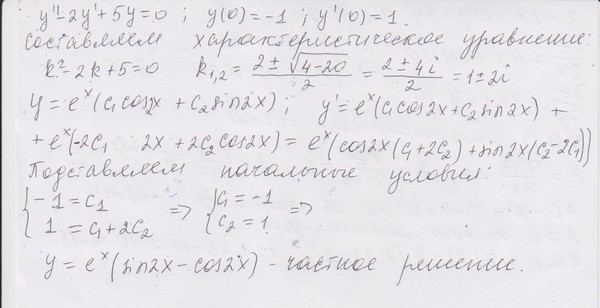 y''-2y'+5y=0 ; y(0)=-1 ; y'(0)=1.
Составляем характеристическое уравнение:
k²-2k+5=0 k₁,₂ = (2±√(4-20))/2 = (2±4i)/2 = 1±2i
y = eˣ(c₁cos2x + c₂sin2x) ; y' = eˣ(c₁cos2x+c₂sin2x) +
+ eˣ(-2c₁ 2x + 2c₂cos2x) = eˣ(cos2x(c₁+2c₂) + sin2x(c₂-2c₁))
Подставляем начальные условия:
{ -1 = c₁ ; 1 = c₁+2c₂ => { c₁ = -1 ; c₂ = 1 =>
y = eˣ(sin2x - cos2x) - частное решение.